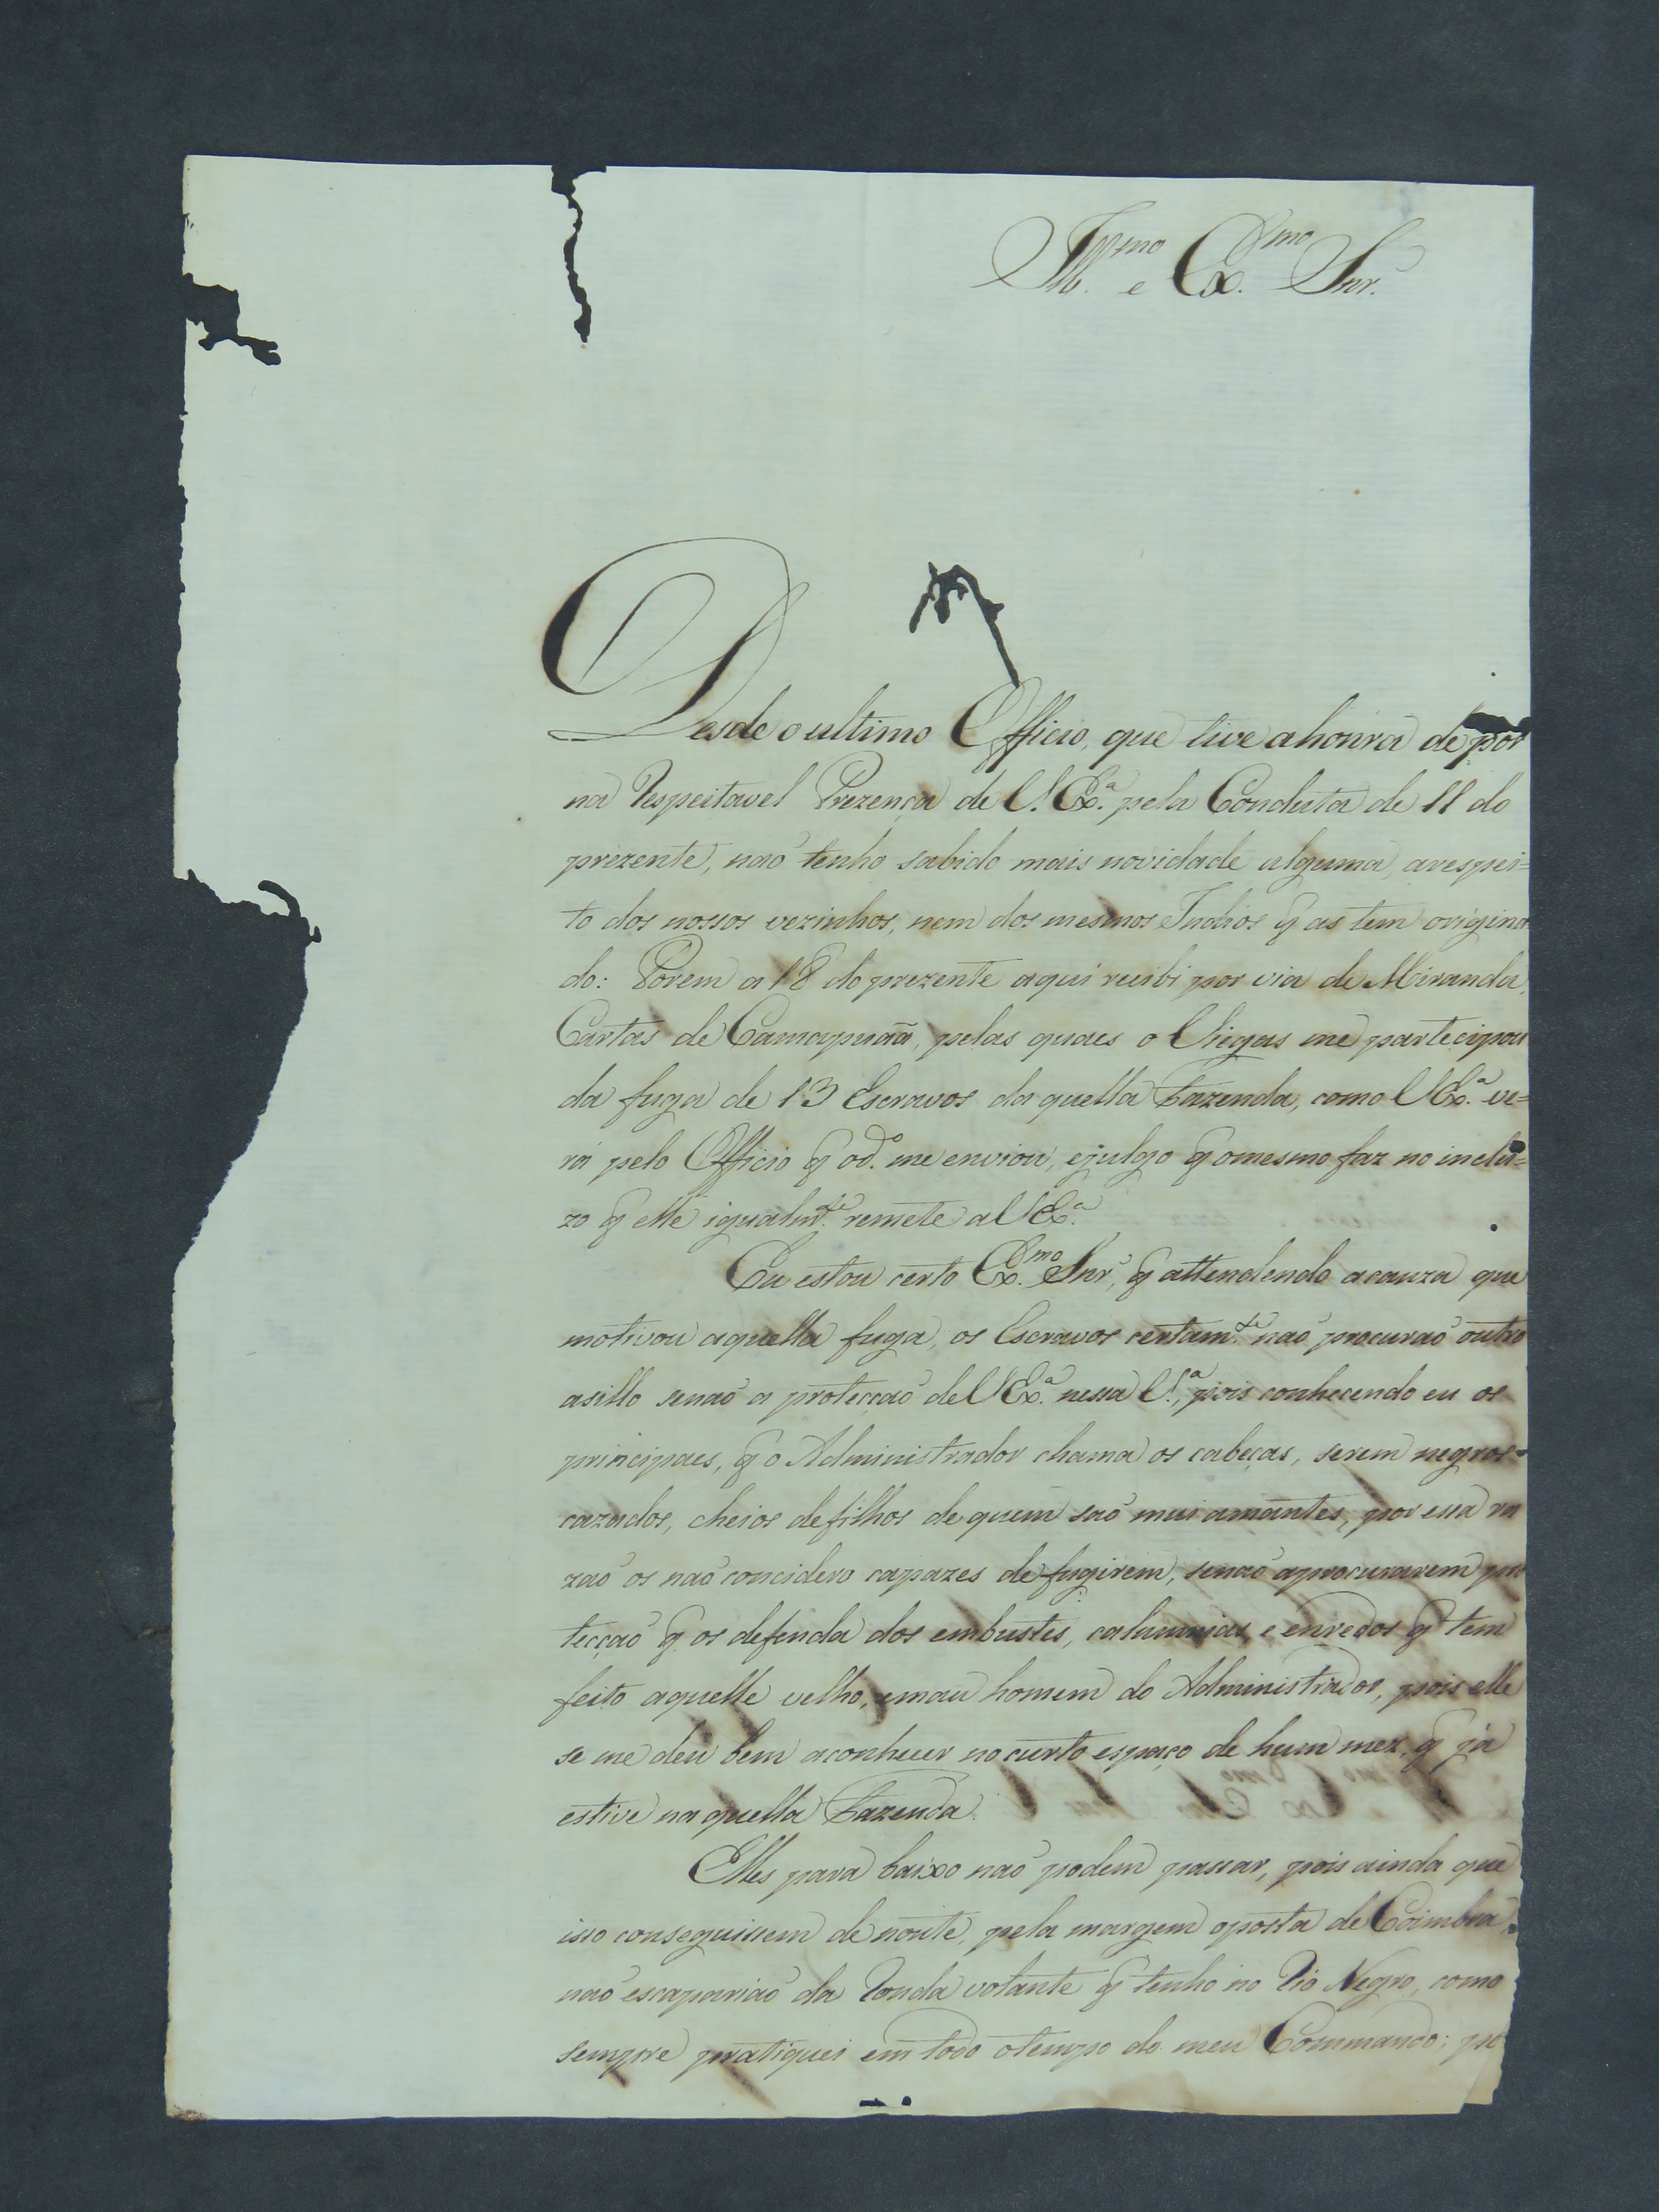 Ill.mo e Ex.mo Snr.
Desde o ultimo Officio, que tive a honra de por
na Respeitavel Prezença de V. Ex.ª pela Conduta de 11 do
prezente, naõ tenho sabido mais novidade alguma, arespei=
to dos nossos vezinhos, nem dos mesmos Indios q̃ as tem origina
do: Porem a 18 do prezente aqui recibi por via de Miranda,
Cartas de Camapuãa, pelas quaes o Viegas me partecipou
da fuga de 13 Escravos da quella Fazenda, como V Ex.ª ve=
rá pelo Officio q̃ o d.º me enviou, e julgo q̃ omesmo faz no inclu=
zo q̃ elle igualm.te remete a V Ex.ª
Eu estou certo Ex.mo Snr', q̃ attendendo acauza que
motivou aquella fuga, os Escravos certam.te naõ procuraõ outro
asillo senaõ a protecçaõ de V Ex.ª nessa V.ª, pois conhecendo eu os
principaes, q̃ o Administrador chama os cabeças, serem negros
cazados, cheios de filhos de quem saõ mui amantes, por essa ra
zaõ os naõ concidero capazes de fugirem, senaõ aprocurarem pro
tecçaõ q̃ os defenda dos embustes, calumnias, e enredos q̃ tem
feito aquelle velho, emau homem do Administrador, pois elle
se me deu bem aconhecer no curto espaço de hum mez, q̃ já
estive na quella Fazenda.
Elles para baixo naõ podem passar, pois ainda que
isso conseguissem de noute, pela margem oposta de Coimbra,
naõ escapariaõ da Ronda volante q̃ tenho no Rio Negro, como
sempre pratiquei em todo otempo do meu Commando: po